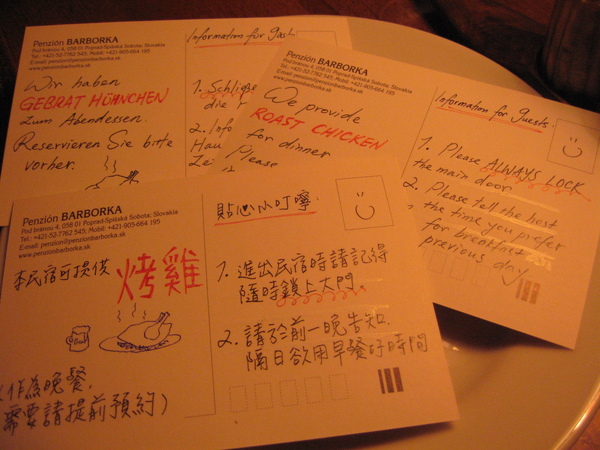 Penzión BARBORKA
Pod bránou 4, 058 01 Poprad-Spišská Sobota, Slovakia
Tel.: +421-52-7762 545; Mobil: +421-905-664 195
E-mail: penzion@penzionbarborka.sk
www.penzionbarborka.sk
Wir haben
GEBRAT HÜHNCHEN
zum Abendessen.
Reservieren Sie bitte
vorher.
Information für
1. Schließe
die
2. Info
Hau
Zei
Penzión BARBORKA
Pod bránou 4, 058 01 Poprad-Spišská Sobota, Slovakia
Tel.: +421-52-7762 545; Mobil: +421-905-664 195
E-mail: penzion@penzionbarborka.sk
www.penzionbarborka.sk
We provide
ROAST CHICKEN
for dinner
Please
Information for Guests:
1. Please ALWAYS LOCK
the main door
2. Please tell the host
the time you prefer
for breakfast
previous day
Penzión BARBORKA
Pod bránou 4, 058 01 Poprad-Spišská Sobota, Slovakia
Tel.: +421-52-7762 545; Mobil: +421-905-664 195
E-mail: penzion@penzionbarborka.sk
www.penzionbarborka.sk
本民宿可提供
烤雞
作為晚餐,
需要請提前預約)
貼心小叮嚀:
1. 進出民宿時請記得
隨時鎖上大門
2. 請於前一晚告知,
隔日欲用早餐的時間